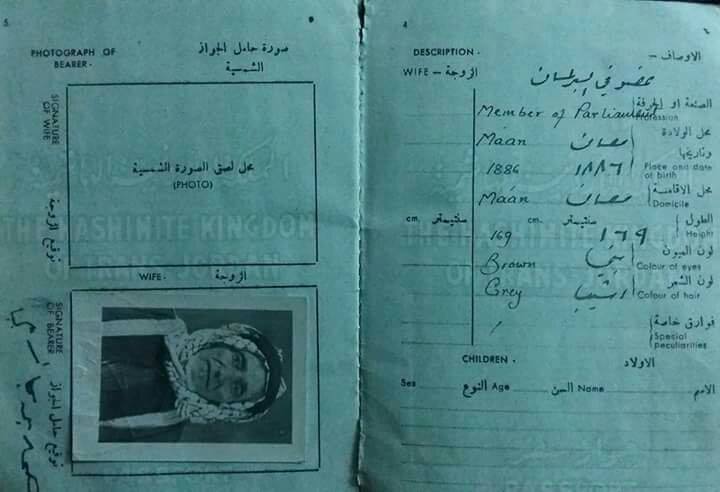 5 ٥
PHOTOGRAPH OF صورة حامل الجواز
BEARER · الشمسية
SIGNATURE
OF WIFE
توقيع الزوجة
محل لصق الصورة الشمسية
(PHOTO)
THE HASHIMITE KINGDOM
OF TRANS-JORDAN
WIFE · الزوجة
SIGNATURE
OF BEARER
توقيع حامل الجواز
4 ٤
DESCRIPTION · الاوصاف —
WIFE — الزوجة
عضو في البرلمان
الصنعة او الحرفة
Member of Parliament Profession
Máan معان محل الولادة
وتاريخها
1886 ١٨٨٦ Place and date
of birth
Máan معان محل الاقامة
Domicile
cm. سنتيمتر cm. سنتيمتر الطول
169 ١٦٩ Height
Brown بني لون العيون
Colour of eyes
Grey اشيب لون الشعر
Colour of hair
فوارق خاصة
Special
peculiarities
CHILDREN · الاولاد
Sex النوع Age السن Name الاسم